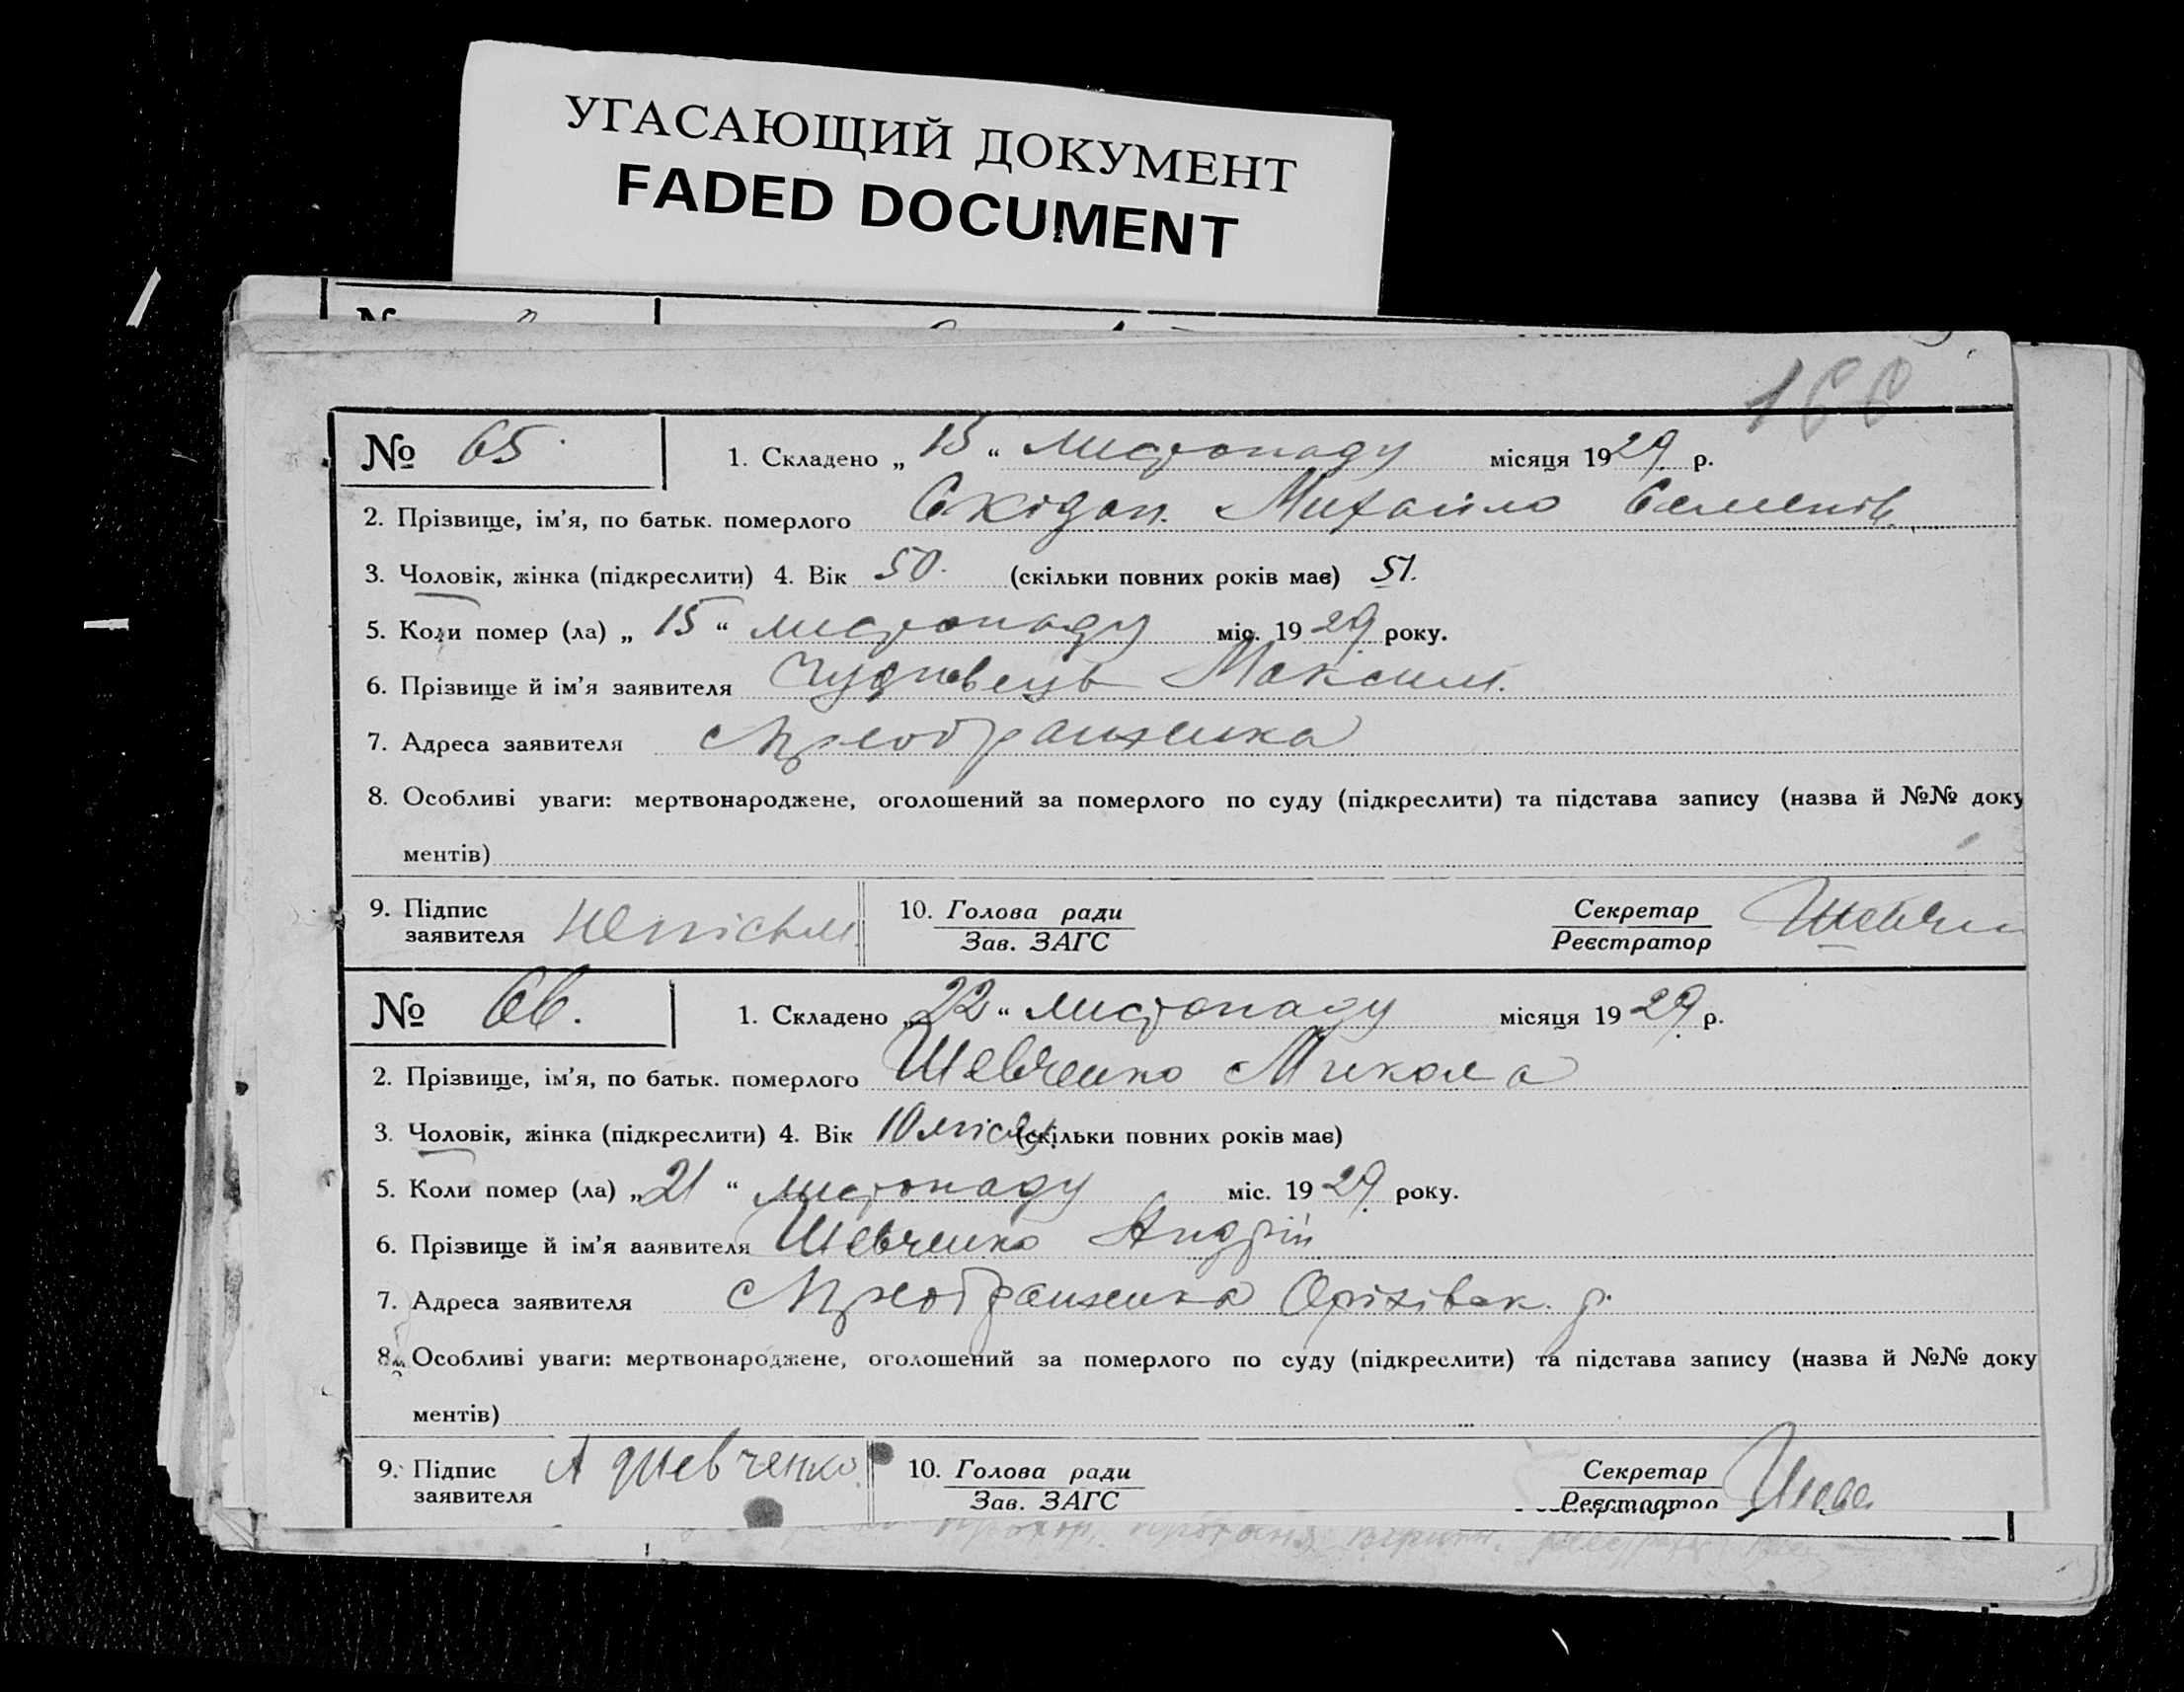 УГАСАЮЩИЙ ДОКУМЕНТ
FADED DOCUMENT
№
№ 65. 1. Складено „ 15 “ листопаду місяця 1929 р.
2. Прізвище, ім’я, по батьк. померлого Скідан. Михайло Семенів.
3. Чоловік, жінка (підкреслити) 4. Вік 50. (скільки повних років має) 51.
5. Коли помер (ла) „ 15 “ листопаду міс. 1929 року.
6. Прізвище й ім’я заявителя Чуднвець Максим.
7. Адреса заявителя Преображенка
8. Особливі уваги: мертвонароджене, оголошений за померлого по суду (підкреслити) та підстава запису (назва й №№ доку
ментів)
9. Підпис заявителя непісьм. 10. Голова ради Секретар
Зав. ЗАГС Реєстратор
№ 66. 1. Складено „22“ листопаду місяця 1929 р.
2. Прізвище, ім’я, по батьк. померлого Шевченко Микола
3. Чоловік, жінка (підкреслити) 4. Вік 10 місяц. (скільки повних років має)
5. Коли помер (ла) „21“ листопаду міс. 1929 року.
6. Прізвище й ім’я заявителя Шевченко Андрій
7. Адреса заявителя Преображенка Оріхівск. р.
8. Особливі уваги: мертвонароджене, оголошений за померлого по суду (підкреслити) та підстава запису (назва й №№ доку
ментів)
9. Підпис заявителя А Шевченко 10. Голова ради Секретар
Зав. ЗАГС Реєстратор